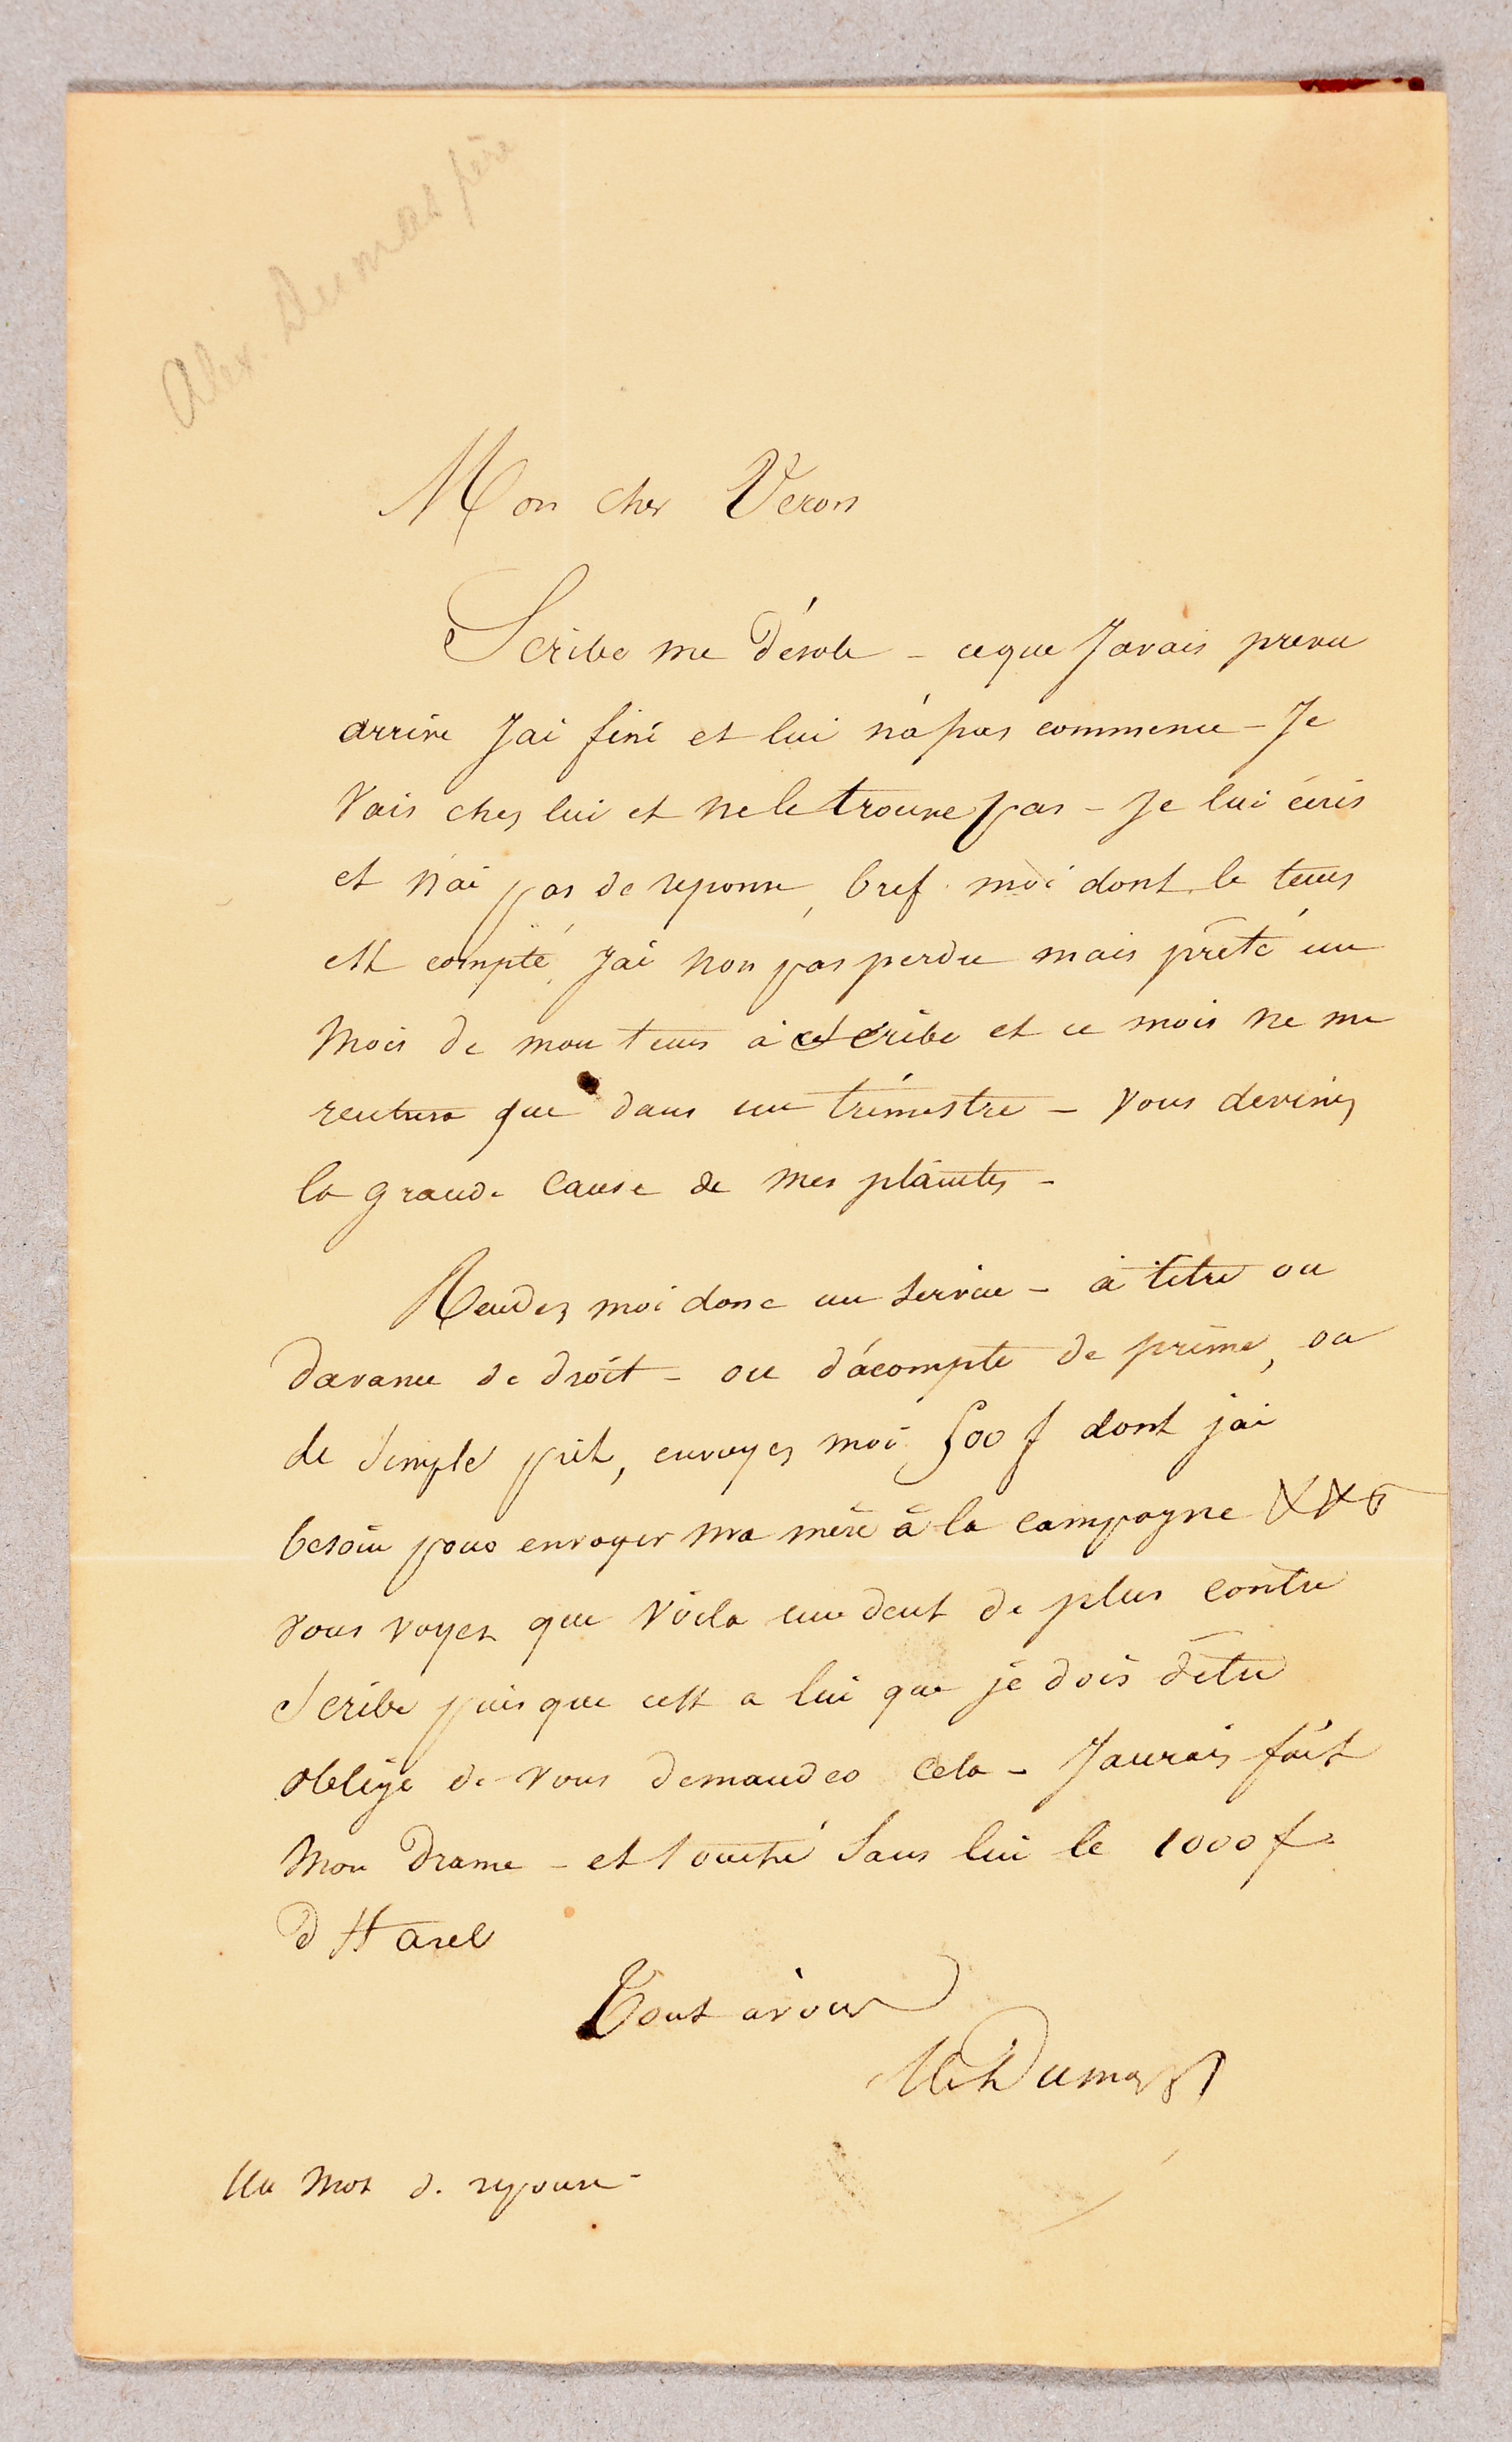 Alex. Dumas père
Mon cher Veron
Scribe me désole – ceque Javais prevu
arrive Jai fini et lui n'a pas commence – Je
vais chez lui et ne le trouve pas – Je lui écris
et n'ai pas de reponse, bref moi dont le tems
est compté, Jai non pas perdu mais prété un
mois de mon tems à Scribe et ce mois ne me
rentrera que dans un trimestre – vous devinez
la grande cause de mes plaintes –
Rendez moi donc un service – à titre ou
davance de droit – ou d'acompte de prime, ou
de simple prêt, envoyez moi 500 f dont jai
besoin pour envoyer ma mère à la campagne
vous voyez que voila une dent de plus contre
Scribe puisque cest a lui que je dois d'être
obligé de vous demander cela – Jaurais fait
mon Drame – et touché sans lui le 1000 f
d Harel
Tout a vous
Alex Dumas
Un mot de reponse –